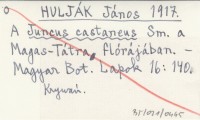 HULJÁK János 1917.
A Juncus castaneus Sm. a
Magas-Tátra flórájában. –
Magyar Bot. Lapok 16: 140.